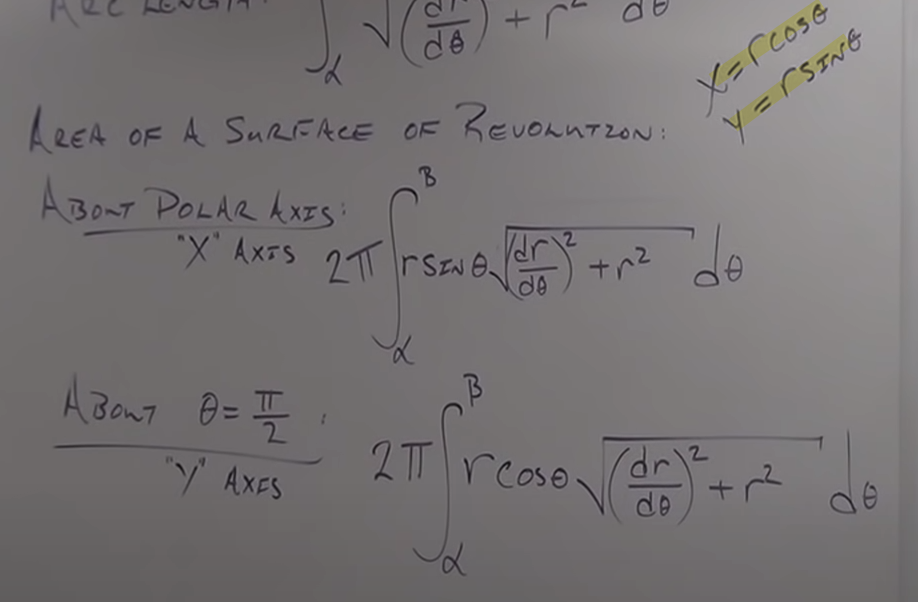 ARC LENGTH: ∫α √(dr/dθ) + r² dθ
x=rcosθ
y=rsinθ
AREA OF A SURFACE OF REVOLUTION:
ABOUT POLAR AXIS:
"X" AXIS 2π ∫αᴮ rsinθ √((dr/dθ)² + r²) dθ
ABOUT θ = π/2 :
"Y" AXIS 2π ∫αᵝ rcosθ √((dr/dθ)² + r²) dθ